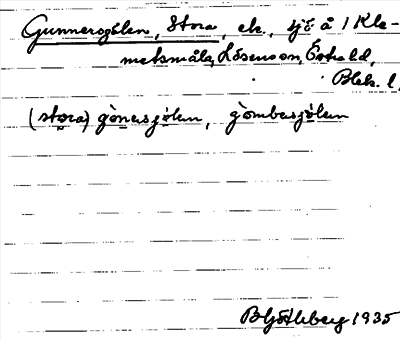 Gunnersgölen, Stora, ek., sjö å 1 Kle-
metsmåla, Lösenson, Östral d,
Blek. l.
(stora) gònersjölen, gòmbersjölen
B Götlberg 1935